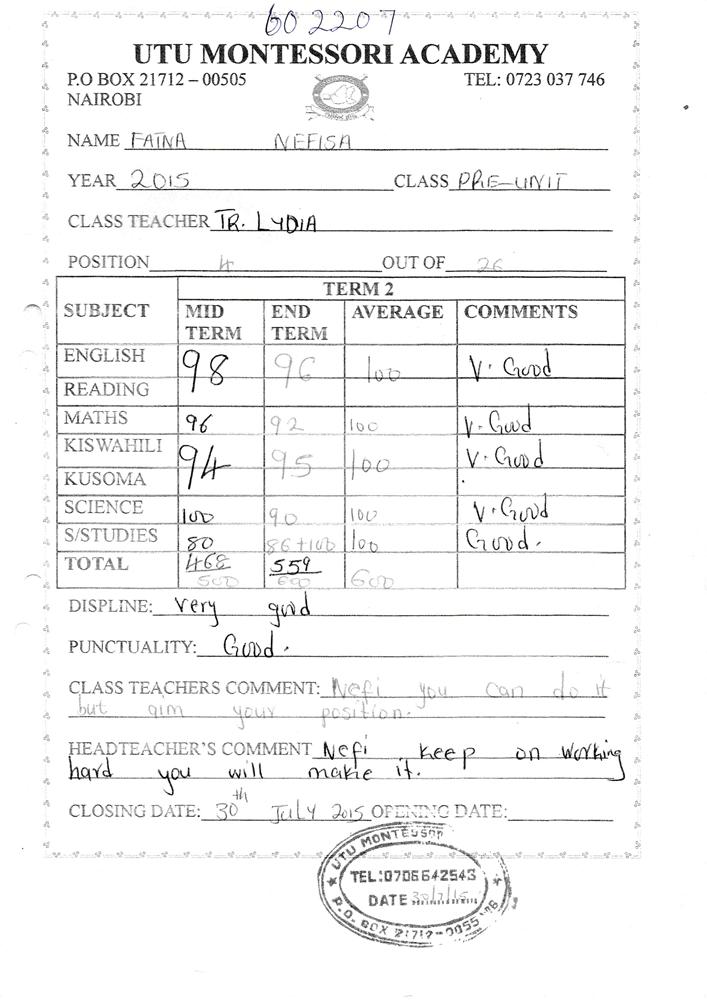 602207
UTU MONTESSORI ACADEMY
P.O BOX 21712 – 00505 TEL: 0723 037 746
NAIROBI
NAME FATNA NEFISA
YEAR 2015 CLASS PRE-UNIT
CLASS TEACHER TR. LYDIA
POSITION 4 OUT OF 26
TERM 2
SUBJECT MID TERM END TERM AVERAGE COMMENTS
ENGLISH 98 96 100 V. Good
READING
MATHS 96 92 100 V. Good
KISWAHILI 94 95 100 V. Good
KUSOMA
SCIENCE 100 90 100 V. Good
S/STUDIES 80 86+100 100 Good.
TOTAL 468 559 600
500 600
DISPLINE: Very good
PUNCTUALITY: Good.
CLASS TEACHERS COMMENT: Nefi you can do it
but aim your position.
HEADTEACHER'S COMMENT Nefi keep on working
hard you will make it.
CLOSING DATE: 30th July 2015 OPENING DATE:
UTU MONTESSORI
TEL:0706642543
DATE 30/7/15
P.O. BOX 21712-0055